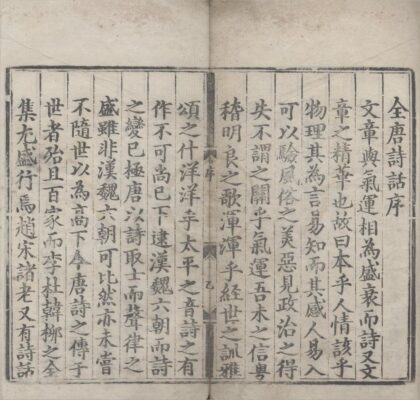 全唐詩話序
文章與氣運相為盛衰而詩又文
章之精華也故曰本乎人情該乎
物理其為言易知而其感人易入
可以驗風俗之美惡見政治之得
失不謂之關乎氣運吾未之信粤
稽明良之歌渾渾乎經世之訓雅
序
乙
頌之什洋洋乎太平之音詩之有
作不可尚已下逮漢魏六朝而詩
之變已極唐以詩取士而聲律之
盛雖非漢魏六朝可比然亦未嘗
不隨世以為高下今唐詩之傳于
世者殆且百家而李杜韓栁之全
集尤盛行焉趙宋諸老又有詩話